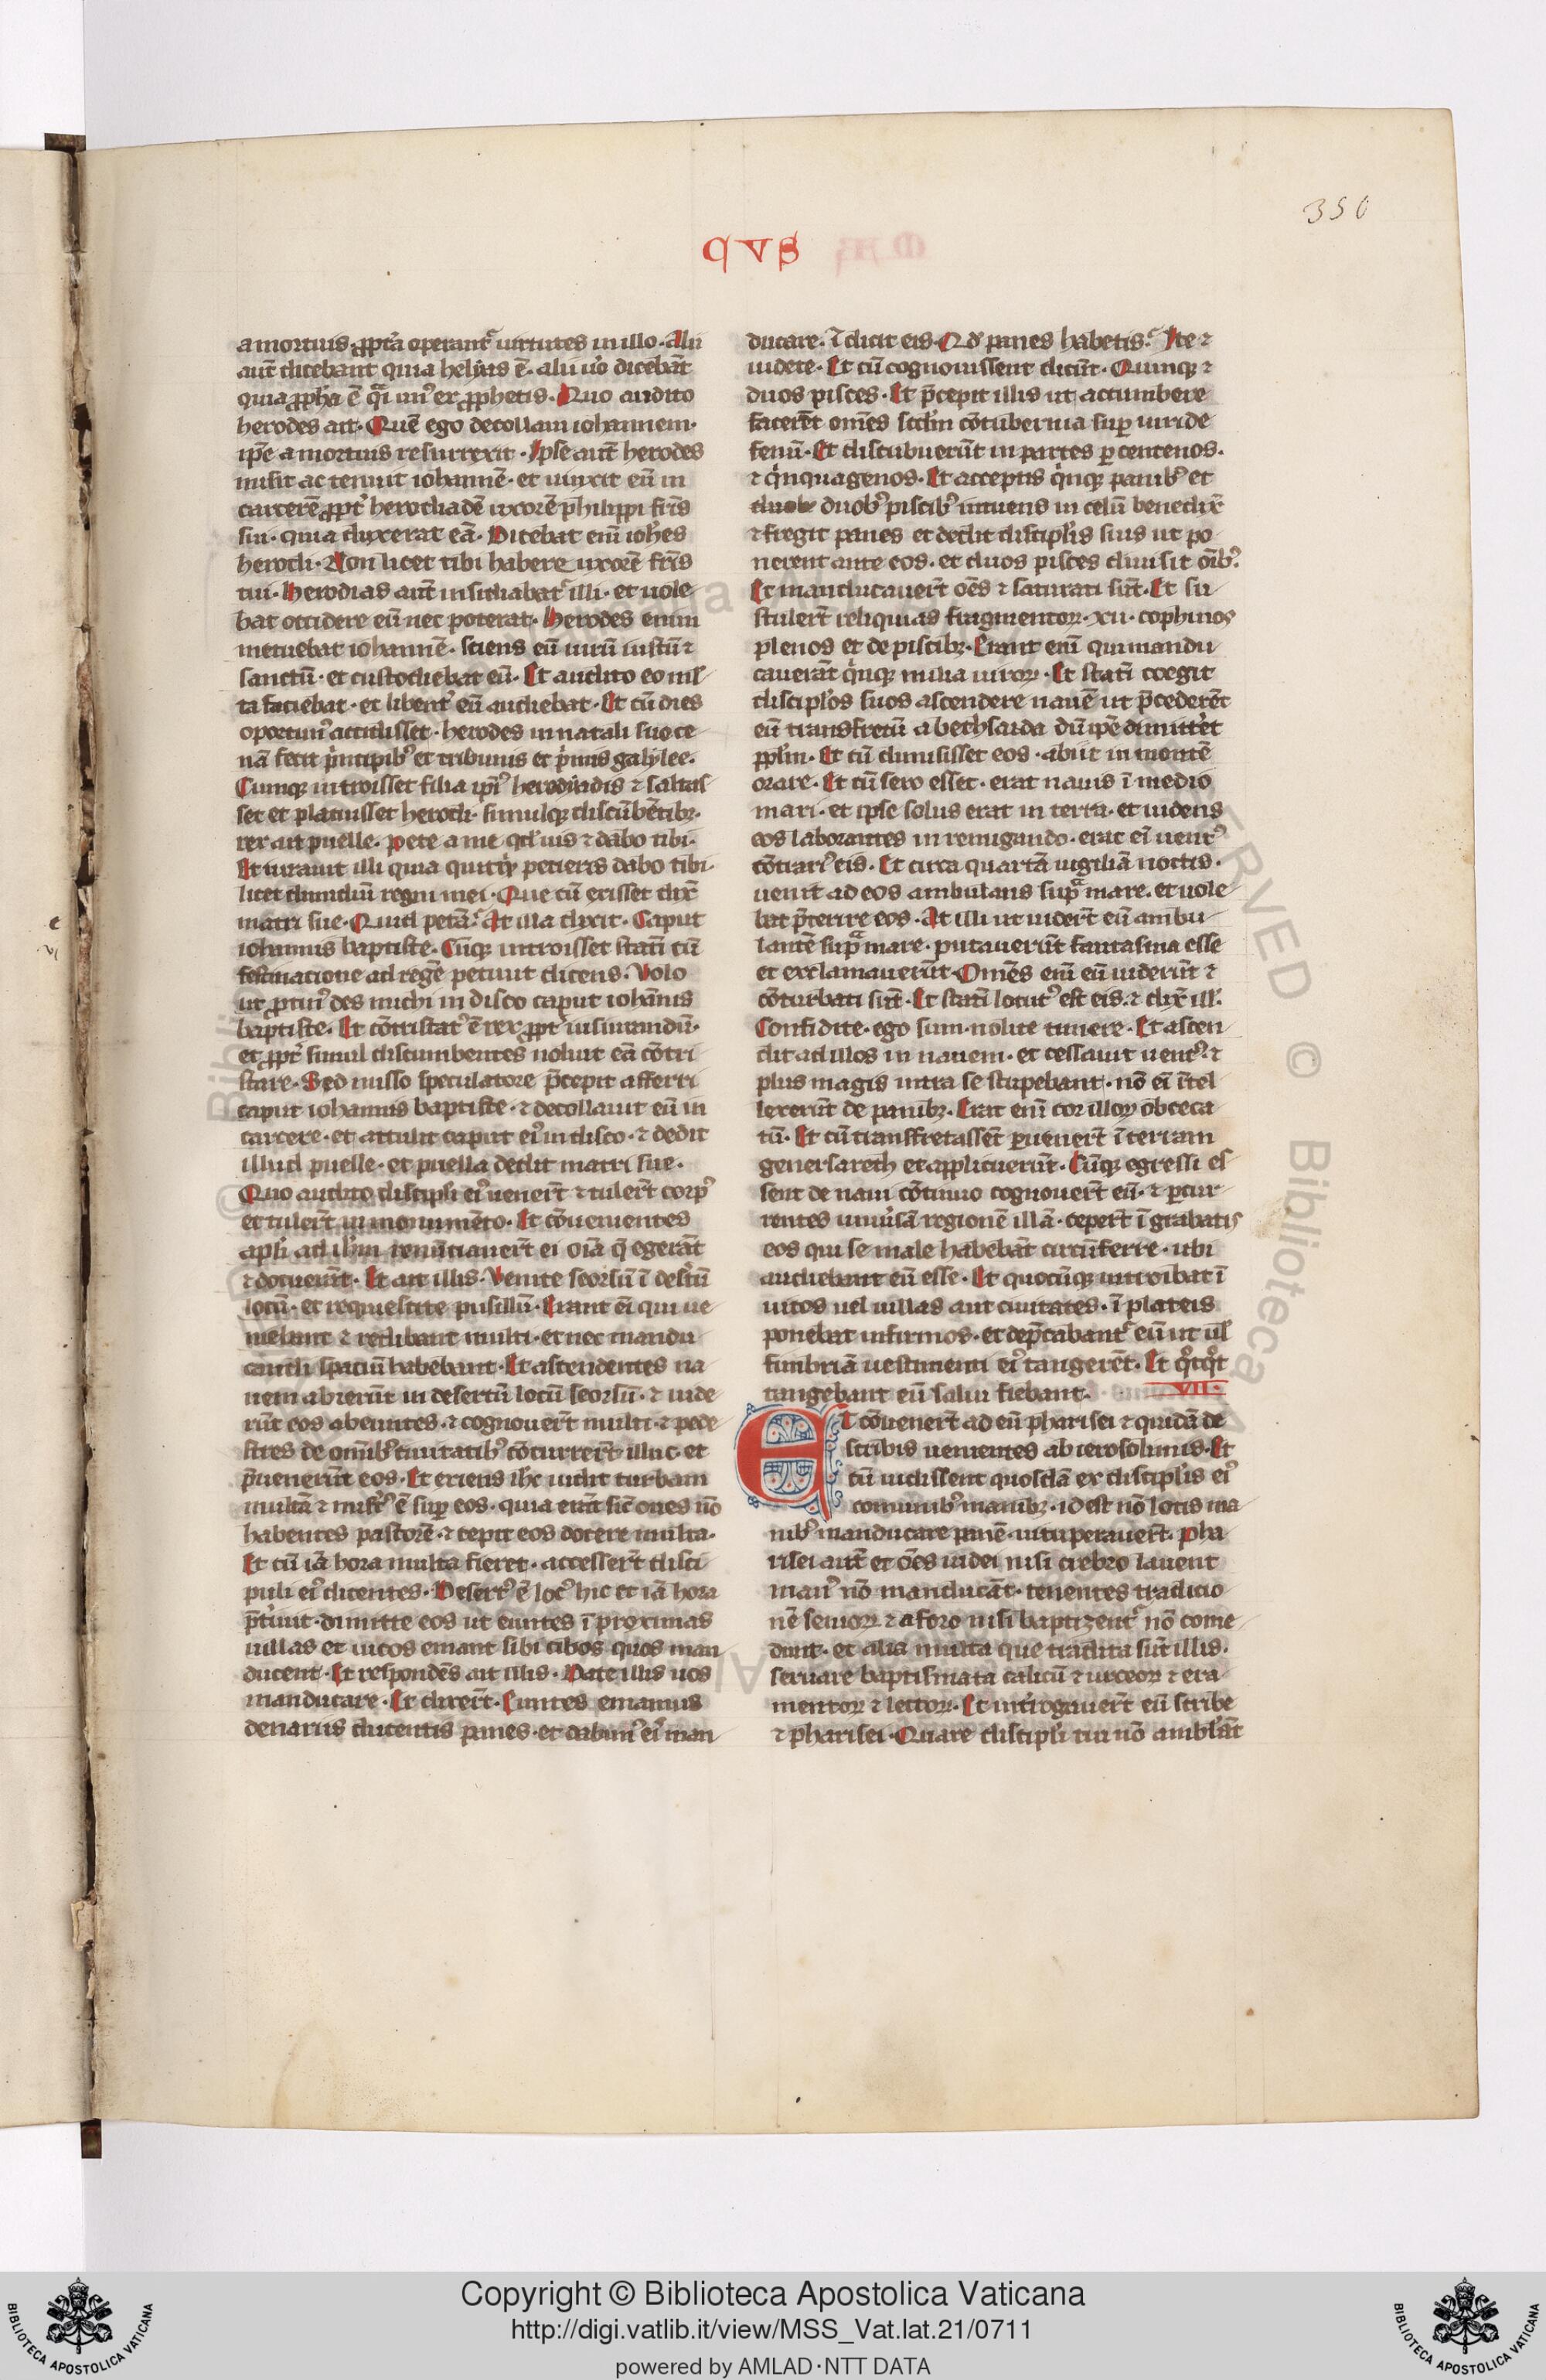 350
QVS
a mortuis. ꝓpt̾a operant᷑ uirtutes in illo. Alii
aut̄ dicebant quia helyas ē. alii u̾o dicebāt
quia ꝓph̾a ē qͣi un᷒ ex ꝓphetis. Quo audito
herodes ait. Quē ego decollaui iohannem.
ip̄e a mortuis resurrexit. Ipse aut̄ herodes
misit ac tenuit iohannē. et uinxit eū in
carcerē ꝓpt̾ herodiadē uxorē philippi fr̄is
sui. quia duxerat eā. Dicebat eni᷑ ioh̾es
herodi. Non licet tibi habere uxorē fr̄is
tui. Herodias aut̄ insidiabat᷑ illi. et uole
bat occidere eū nec poterat. Herodes enim
metuebat iohannē. sciens eū uirū iustū ⁊
sanctū. et custodiebat eū. Et audito eo ml̾
ta faciebat. et libent̾ eū audiebat. Et cū dies
oportun᷒ accidisset. herodes in natali suo ce
nā fecit p̾ncipib᷒ et tribunis et p̾mis galylee.
Cumqꝫ introisset filia ip̄i᷒ herodiadis ⁊ saltas
set et placuisset herodi. simulqꝫ discūbētibꝫ.
rex ait puelle. pete a me qd̾ uis ⁊ dabo tibi.
Et iurauit illi quia quicqͥ petieris dabo tibi
licet dimidiū regni mei. Que cū exisset dix̄
matri sue. Quid petā. At illa dixit. Caput
iohannis baptiste. Cūqꝫ introisset stati᷑ cū
festinatione ad regē petiuit dicens. Volo
ut ꝓtin᷒ des michi in disco caput iohānis
baptiste. Et cōtristat᷒ ē rex ꝓpt̾ iusiurandū.
et ꝓpt̾ simul discumbentes noluit eā cōtri
stare. Sed misso speculatore p̄cepit afferri
caput iohannis baptiste. ⁊ decollauit eū in
carcere. et attulit caput ei᷒ in disco. ⁊ dedit
illud puelle. et puella dedit matri sue.
Quo audito discipli ei᷒ uener̄t ⁊ tuler̄t corp᷒
et tuler̄t in monumēto. Et cōuenientes
apl̾i ad ih̄m renūciauer̄t ei oi᷑a q̄ egerāt
⁊ docuerāt. Et ait illis. Venite seorsū ī desertū
locū. et requiescite pusillū. Erant ei᷑ qui ue
niebant ⁊ redibant multi. et nec mandu
candi spaciū habebant. Et ascendentes na
uem abierūt in desertū locū seorsū. ⁊ uide
rūt eos abeuntes. ⁊ cognouer̄t multi. ⁊ pede
stres de omīb᷒ ciuitatib᷒ cōcurrer̄t illuc. et
p̄uenerūt eos. Et exiens ih̄c uidit turbam
multā ⁊ mis̾t᷒ ē suꝑ eos. quia erāt sic̄ oues nō
habentes pastorē. ⁊ cepit eos docere multa.
Et cū iā hora multa fieret. accesser̄t disci
puli ei᷒ dicentes. Desert᷒ ē loc᷒ hic et iā hora
p̄t̾iuit. dimitte eos ut euntes ī proximas
uillas et uicos emant sibi cibos quos man
ducent. Et respondēs ait illis. Date illis uos
manducare. Et dixer̄t. Euntes emamus
denariis ducentis panes. et dabim᷒ ei᷒ man
ducare. ⁊ dicit eis. Qd̾ panes habetis. Ite ⁊
uidete. Et cū cognouissent dicūt. Quinqꝫ ⁊
duos pisces. Et p̄cepit illis ut accumbere
facerēt omēs scd̾m cōtubernia suꝑ uiride
fenū. Et discubuerūt in partes ꝑ centenos.
⁊ qͥnquagenos. Et acceptis qͥnqꝫ panib᷒ et
duobꝫ duob᷒ piscib᷒ intuens in celū benedix̄
⁊ fregit panes et dedit discipl̾is suis ut po
nerent ante eos. et duos pisces diuisit oi᷑b᷒.
Et manducauer̄t oēs ⁊ saturati sūt. Et su
stuler̄t reliquias fragmentoꝝ .xii. cophinos
plenos et de piscibꝫ. Erant eni᷑ qui mandu
cauerāt qͥnqꝫ milia uiroꝝ. Et stati᷑ coegit
discipl̾os suos ascendere nauē ut p̄cederēt
eū transfretū a bethsaida dū ip̄e dimitt̾et
ppl̾m. Et cū dimisisset eos. abiit in montē
orare. Et cū sero esset. erat nauis ī medio
mari. et ipse solus erat in terra. et uidens
eos laborantes in remigando. erat ei᷑ uent᷒
cōtrari᷒ eis. Et circa quartā uigiliā noctis.
uenit ad eos ambulans supͣ mare. et uole
bat p̄terire eos. At illi ut uider̄t eū ambu
lantē supͣ mare. putauerūt fantasma esse
et exclamauerūt. Omēs eni᷑ eū uiderūt ⁊
cōturbati sūt. Et stati᷑ locut᷒ est eis. ⁊ dix̄ ill̾.
Confidite. ego sum. nolite timere. Et ascen
dit ad illos in nauem. et cessauit uent᷒. ⁊
plus magis intra se stupebant. nō ei᷑ ītel
lexerūt de panibꝫ. Erat eni᷑ cor illoꝝ obceca
tū. Et cū transfretassēt ꝑuener̄t ī terram
genersareth et applicuerūt. Cūqꝫ egressi es
sent de naui cōtinuo cognouer̄t eū. ⁊ ꝑcur
rentes uniu̾sā regionē illā. ceper̄t ī grabatis
eos qui se male habebāt circūferre. ubi
audiebant eū esse. Et quocūqꝫ introibat ī
uicos uel uillas aut ciuitates. ī plateis
ponebat infirmos. et dep̄cabant᷑ eū ut ul̾
fimbriā uestimenti ei᷒ tangerēt. Et qͦtqͦt
tangebant eū salui fiebant.
VII.
Et cōuener̄t ad eū pharisei ⁊ quidā de
scribis uenientes ab ierosolimis. Et
cū uidissent quosdā ex discipl̾is ei᷒
comunib᷒ manibꝫ. id est nō lotis ma
nib᷒ manducare panē. uituperauer̄t. Pha
risei aut̄ et oēs iudei nisi crebro lauent
man᷒ nō manducāt. tenentes tradicio
nē senioꝝ. ⁊ a foro nisi baptizent᷑ nō come
dunt. et alia multa que tradita sūt illis.
seruare baptismata calicū ⁊ urceoꝝ ⁊ era
mentoꝝ ⁊ lectoꝝ. Et int̾rogauer̄t eū scribe
⁊ pharisei. Quare discipl̾i tui nō ambl̾āt
Copyright © Biblioteca Apostolica Vaticana
http://digi.vatlib.it/view/MSS_Vat.lat.21/0711
powered by AMLAD·NTT DATA
BIBLIOTECA APOSTOLICA VATICANA
BIBLIOTECA APOSTOLICA VATICANA